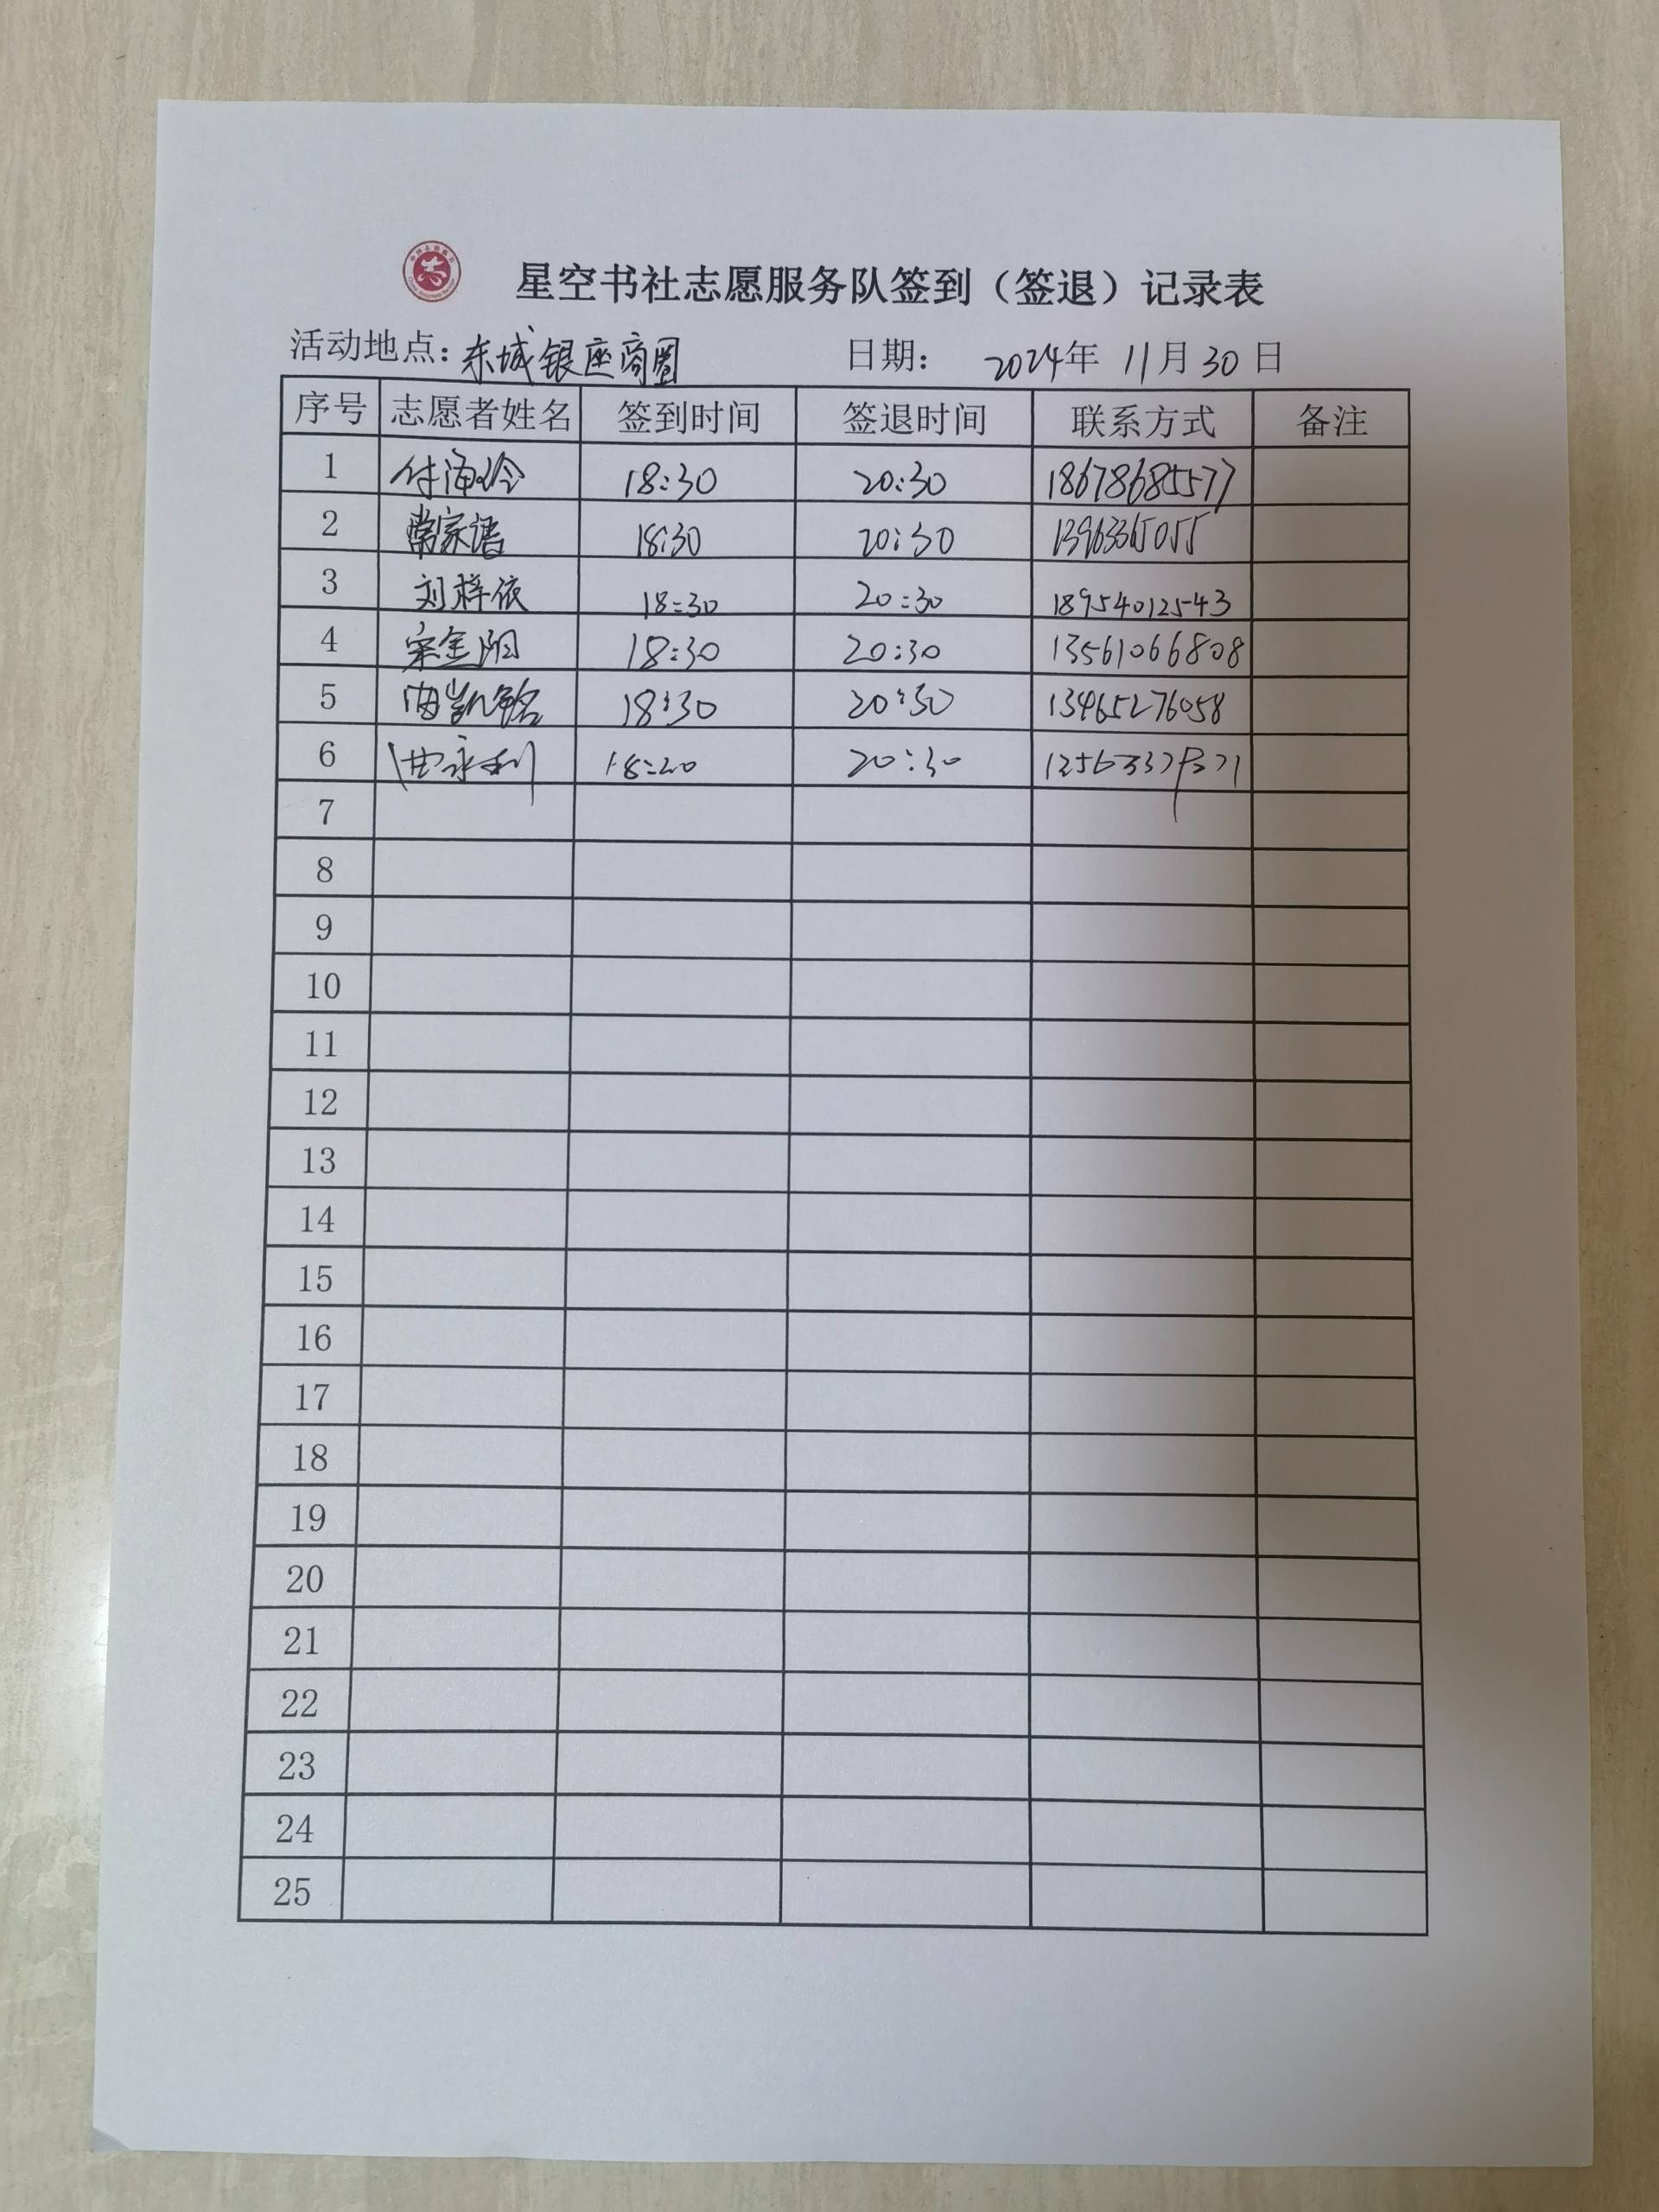 星空书社志愿服务队签到（签退）记录表
活动地点：东城银座商圈 日期： 2024年 11月 30日
序号 志愿者姓名 签到时间 签退时间 联系方式 备注
1 付海玲 18:30 20:30 18678685577
2 常家语 18:30 20:30 13963365055
3 刘梓依 18:30 20:30 18954012543
4 宋金阳 18:30 20:30 13561066808
5 曲凯铭 18:30 20:30 13465276058
6 曲永利 18:20 20:30
7
8
9
10
11
12
13
14
15
16
17
18
19
20
21
22
23
24
25